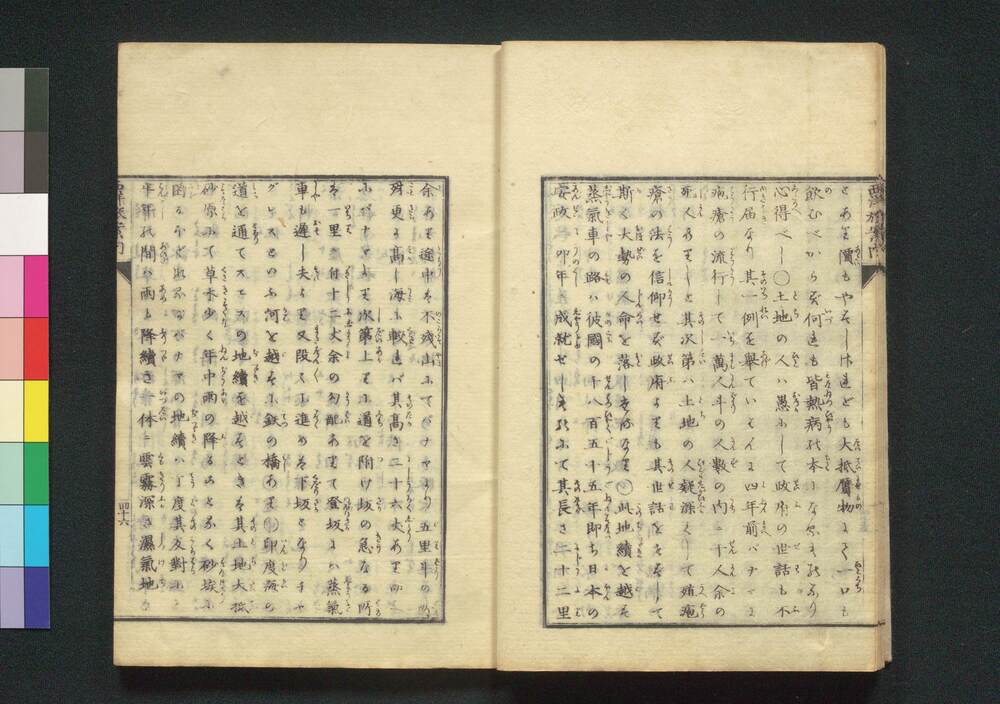 とあり價もやすしけれども大抵贋物にて一口も
飲むべからず何れも皆熱病の本になるものなり
心得べし〇土地の人は愚にして政府の世話も不
行届なり其一例を舉ていはんに四年前パナマに
疱瘡の流行して萬人斗の人數の内千人余の
死人ありしと其次第は土地の人疑深くして殖疱
瘡の法を信仰せず政府よりも其世話をせずして
斯く大勢の人命を落しゝなり〇此地續を越す
蒸氣車の路ハ彼國の千八百五十五年即ち日本の
安政二卯年成就せしものにて其長さ二十二里
余あり途中は不殘山にてパナマより五里半の所
殊更に高し海に較れバ其高さ二十六丈あり
次第上りに道を附け坂の急なる所
は一里に付十二丈余の勾配ありて登坂にハ蒸氣
車も遲し夫より又段々に進めば下坂となりチャ
グレスといふ河を越すに鉄の橋あり〇印度海の
道を通てスエスの地續を越すときは其土地大抵
砂原にて草木少く年中雨の降ることなく砂埃に
困るなどあれどもパナマの地續ハ丁度其反對にて
半年の間ハ雨も降續き一体に雲霧深き濕氣地な
四十六